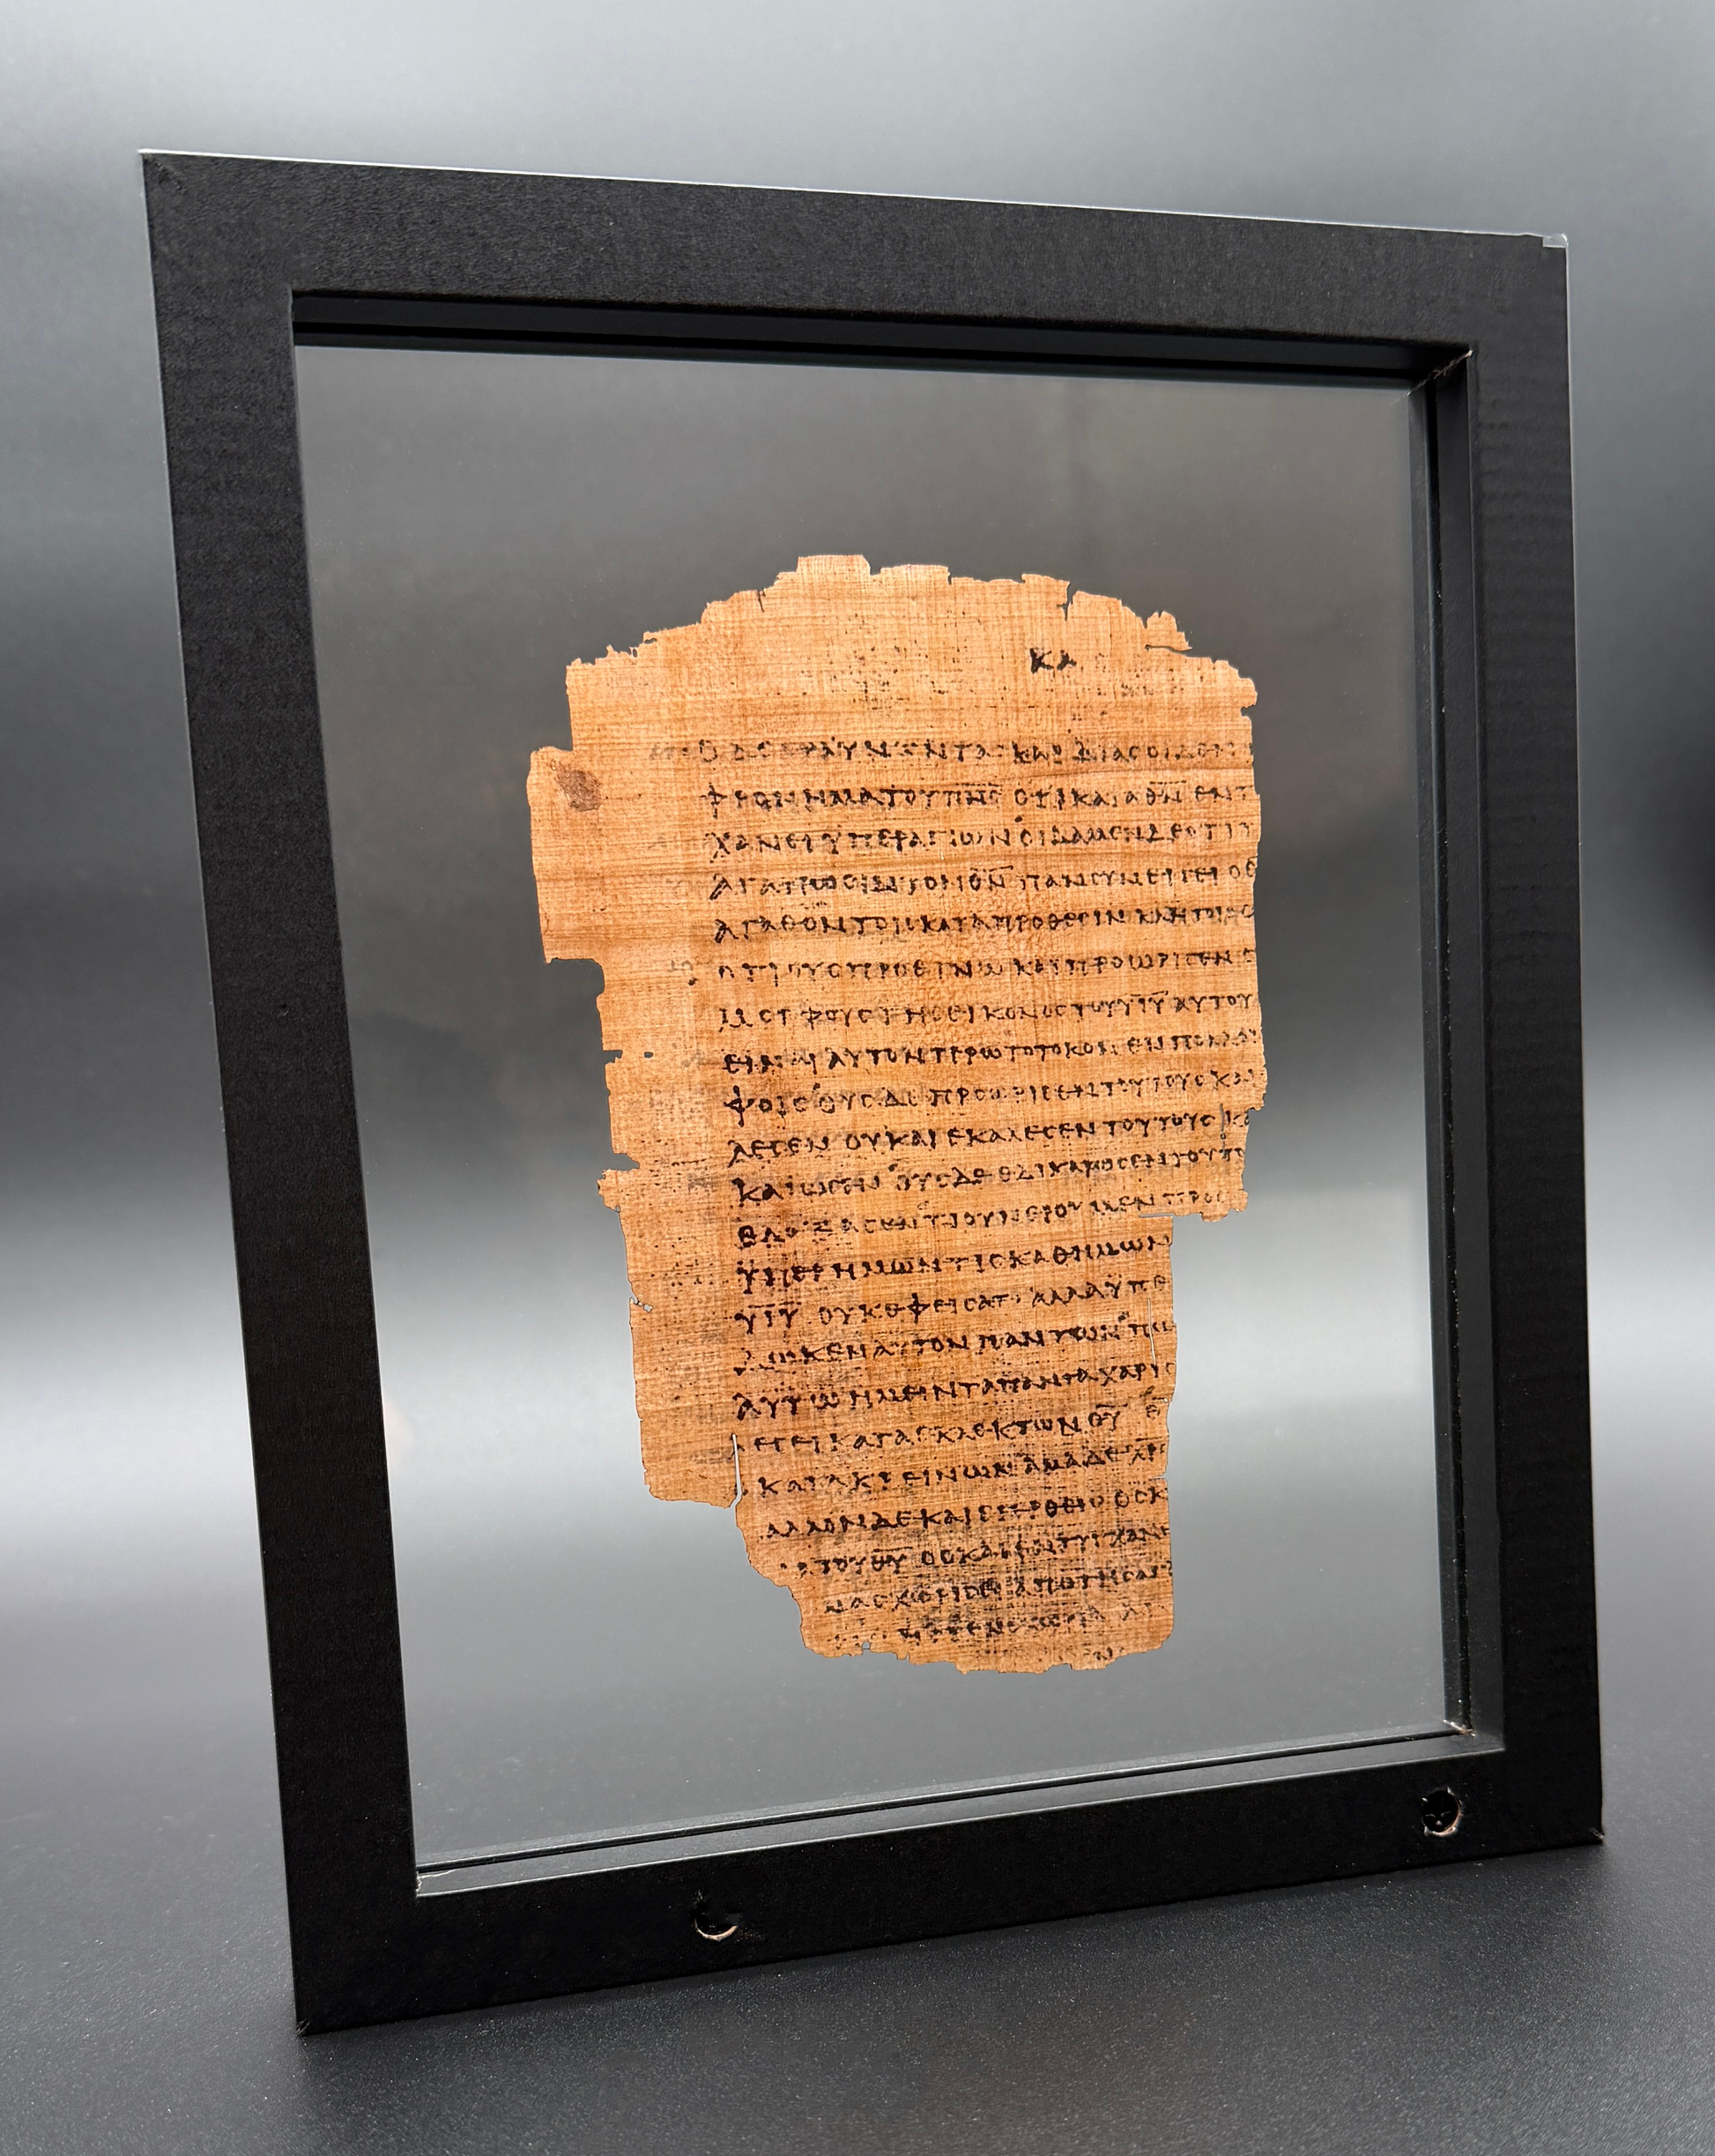 ΚΑ
Ο ΔΕ ΕΡΑΥΝΩΝ ΤΑϹ ΚΑΡΔΙΑϹ ΟΙΔΕΝ
ΦΡΟΝΗΜΑ ΤΟΥ Π̅Ν̅Ϲ̅ ΟΤΙ ΚΑΤΑ Θ̅Ν̅ ΕΝΤ
ΧΑΝΕΙ ΥΠΕΡ ΑΓΙΩΝ ΟΙΔΑΜΕΝ ΔΕ ΟΤΙ Τ
ΑΓΑΠΩϹΙΝ ΤΟΝ Θ̅Ν̅ ΠΑΝ ϹΥΝΕΡΓΕΙ Ο Θ
ΑΓΑΘΟΝ ΤΟΙϹ ΚΑΤΑ ΠΡΟΘΕϹΙΝ ΚΛΗΤΟΙϹ
ΟΤΙ ΟΥϹ ΠΡΟΕΓΝΩ ΚΑΙ ΠΡΟΩΡΙϹΕΝ Ϲ
ΜΟΡΦΟΥϹ ΤΗϹ ΕΙΚΟΝΟϹ ΤΟΥ Υ̅Ι̅Υ̅ ΑΥΤΟΥ
ΕΙΝΑΙ ΑΥΤΟΝ ΠΡΩΤΟΤΟΚΟΝ ΕΝ ΠΟΛΛΟΙ
ΦΟΙϹ ΟΥϹ ΔΕ ΠΡΟΩΡΙϹΕΝ ΤΟΥΤΟΥϹ ΚΑΙ
ΛΕϹΕΝ ΟΥϹ ΚΑΙ ΕΚΑΛΕϹΕΝ ΤΟΥΤΟΥϹ ΚΑ
ΚΑΙΩϹΕΝ ΟΥϹ ΔΕ ΕΔΙΚΑΙΩϹΕΝ ΤΟΥΤΟ
ΕΔΟΞΑϹΕΝ ΤΙ ΟΥΝ ΕΡΟΥΜΕΝ ΠΡΟϹ
ΥΠΕΡ ΗΜΩΝ ΤΙϹ ΚΑΘ ΗΜΩΝ
Υ̅Ι̅Υ̅ ΟΥΚ ΕΦΕΙϹΑΤΟ ΑΛΛΑ ΥΠΕ
ΔΩΚΕΝ ΑΥΤΟΝ ΠΑΝΤΩΝ ΠΩ
ΑΥΤΩ ΗΜΕΙΝ ΤΑ ΠΑΝΤΑ ΧΑΡΙϹ
ΛΕϹΕΙ ΚΑΤΑ ΕΚΛΕΚΤΩΝ Θ̅Υ̅
ΚΑΤΑΚΡΕΙΝΩΝ ΑΜΑ ΔΕ ΧΡ
ΑΛΛΟΝ ΔΕ ΚΑΙ ΕΓΕΡΘΕΙϹ ΟϹ Κ
ΤΟΥ Θ̅Υ̅ ΟϹ ΚΑΙ ΕΝΤΥΓΧΑΝΕ
ΜΑϹ ΧΩΡΙϹΕΙ ΑΠΟ ΤΗϹ ΑΓ